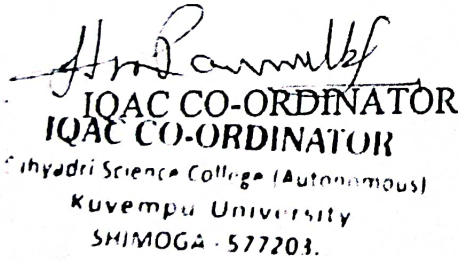 IQAC CO-ORDINATOR
IQAC CO-ORDINATOR
ihyadri Science College (Autonomous)
Kuvempu University
SHIMOGA - 577203.